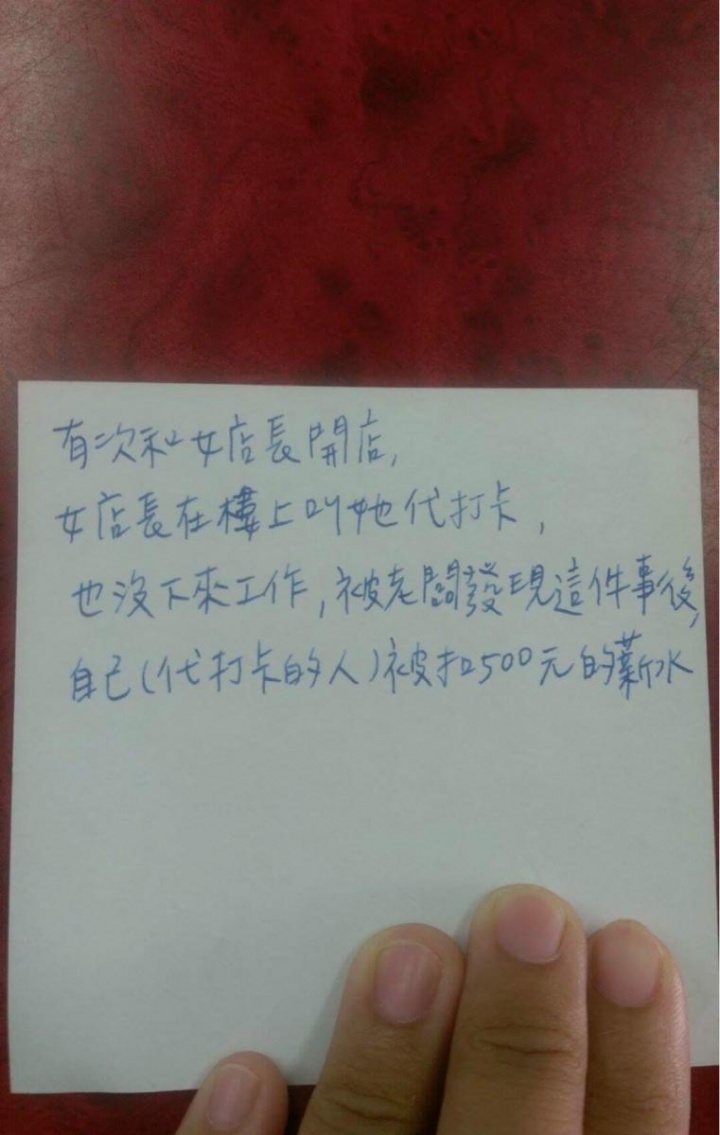 有次和女店長開店,
女店長在樓上叫她代打卡,
也沒下來工作,被老闆發現這件事後,
自己(代打卡的人)被扣500元的薪水